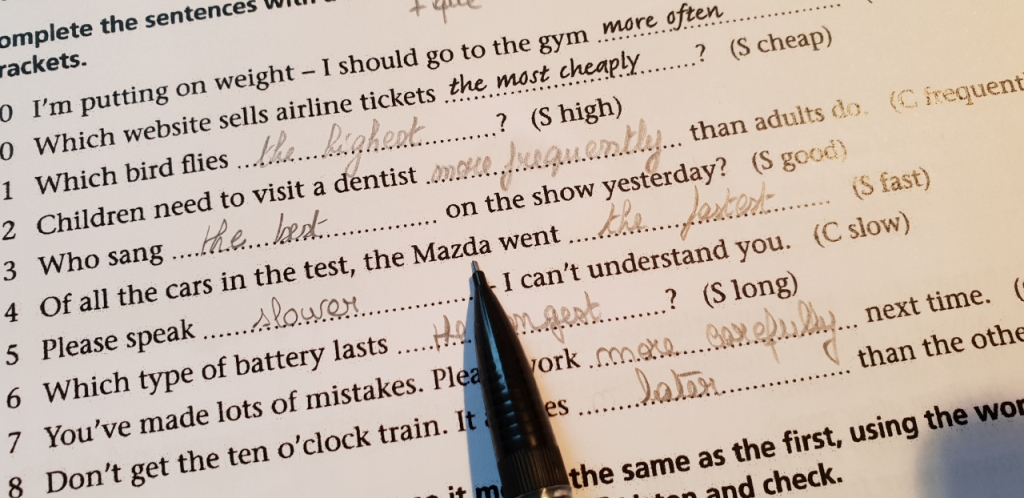 omplete the sentences with
rackets.
0 I'm putting on weight – I should go to the gym more often
0 Which website sells airline tickets the most cheaply ? (S cheap)
1 Which bird flies the highest ? (S high)
2 Children need to visit a dentist more frequently than adults do. (C frequent
3 Who sang the best on the show yesterday? (S good)
4 Of all the cars in the test, the Mazda went the fastest (S fast)
5 Please speak slower - I can't understand you. (C slow)
6 Which type of battery lasts ngest ? (S long)
7 You've made lots of mistakes. Plea ork more carefully next time. (
8 Don't get the ten o'clock train. It es later than the othe
it m the same as the first, using the wor
and check.